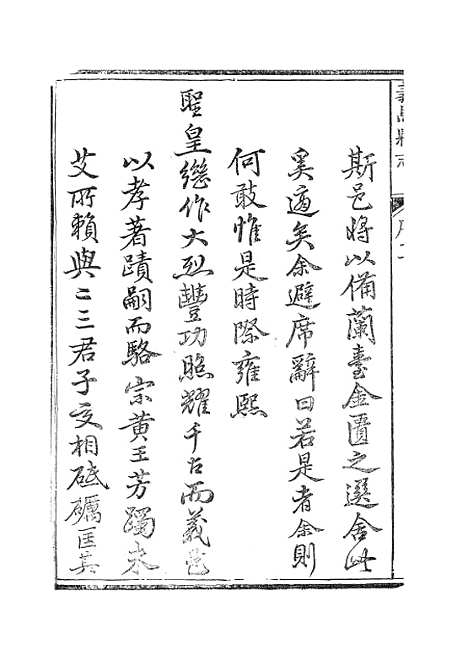 義烏縣志
斯邑将以備蘭臺金匱之選舍此
奚適矣余避席辭曰若是者余則
何敢惟是時際雍熙
聖皇繼作大烈豐功照耀千古而義邑
以孝著蹟嗣而駱宗黄王芳躅未
艾所賴與二三君子交相砥礪匡其